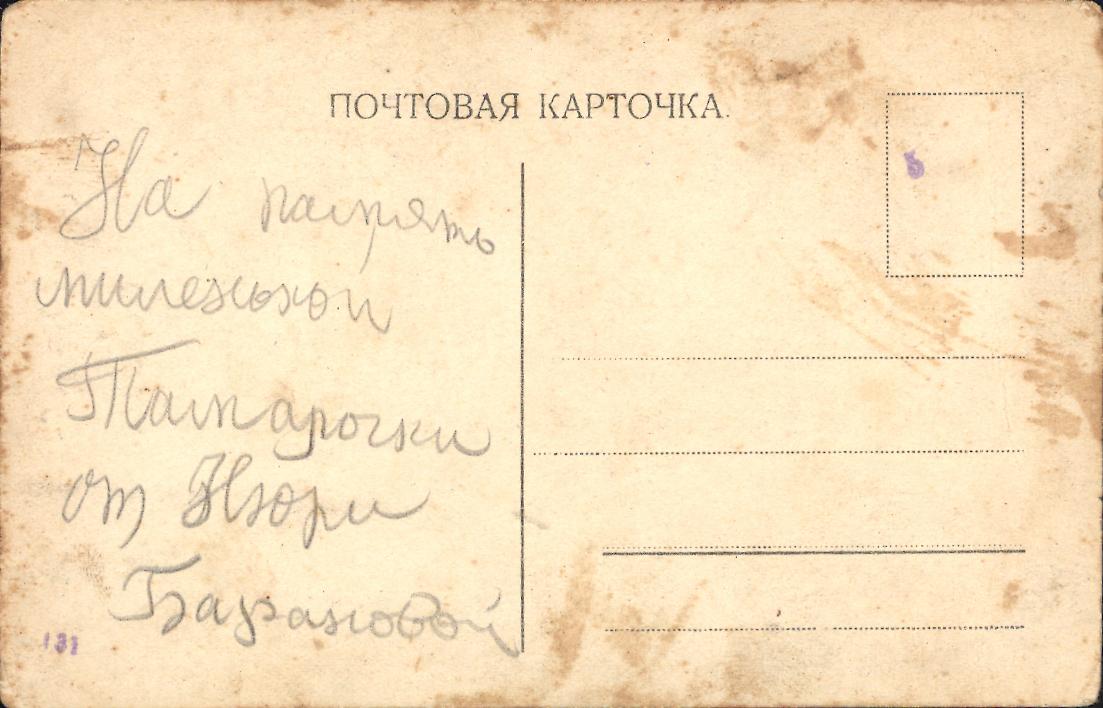 ПОЧТОВАЯ КАРТОЧКА.
На память
миленькой
Тамарочки
от Нюри
Барановой
131